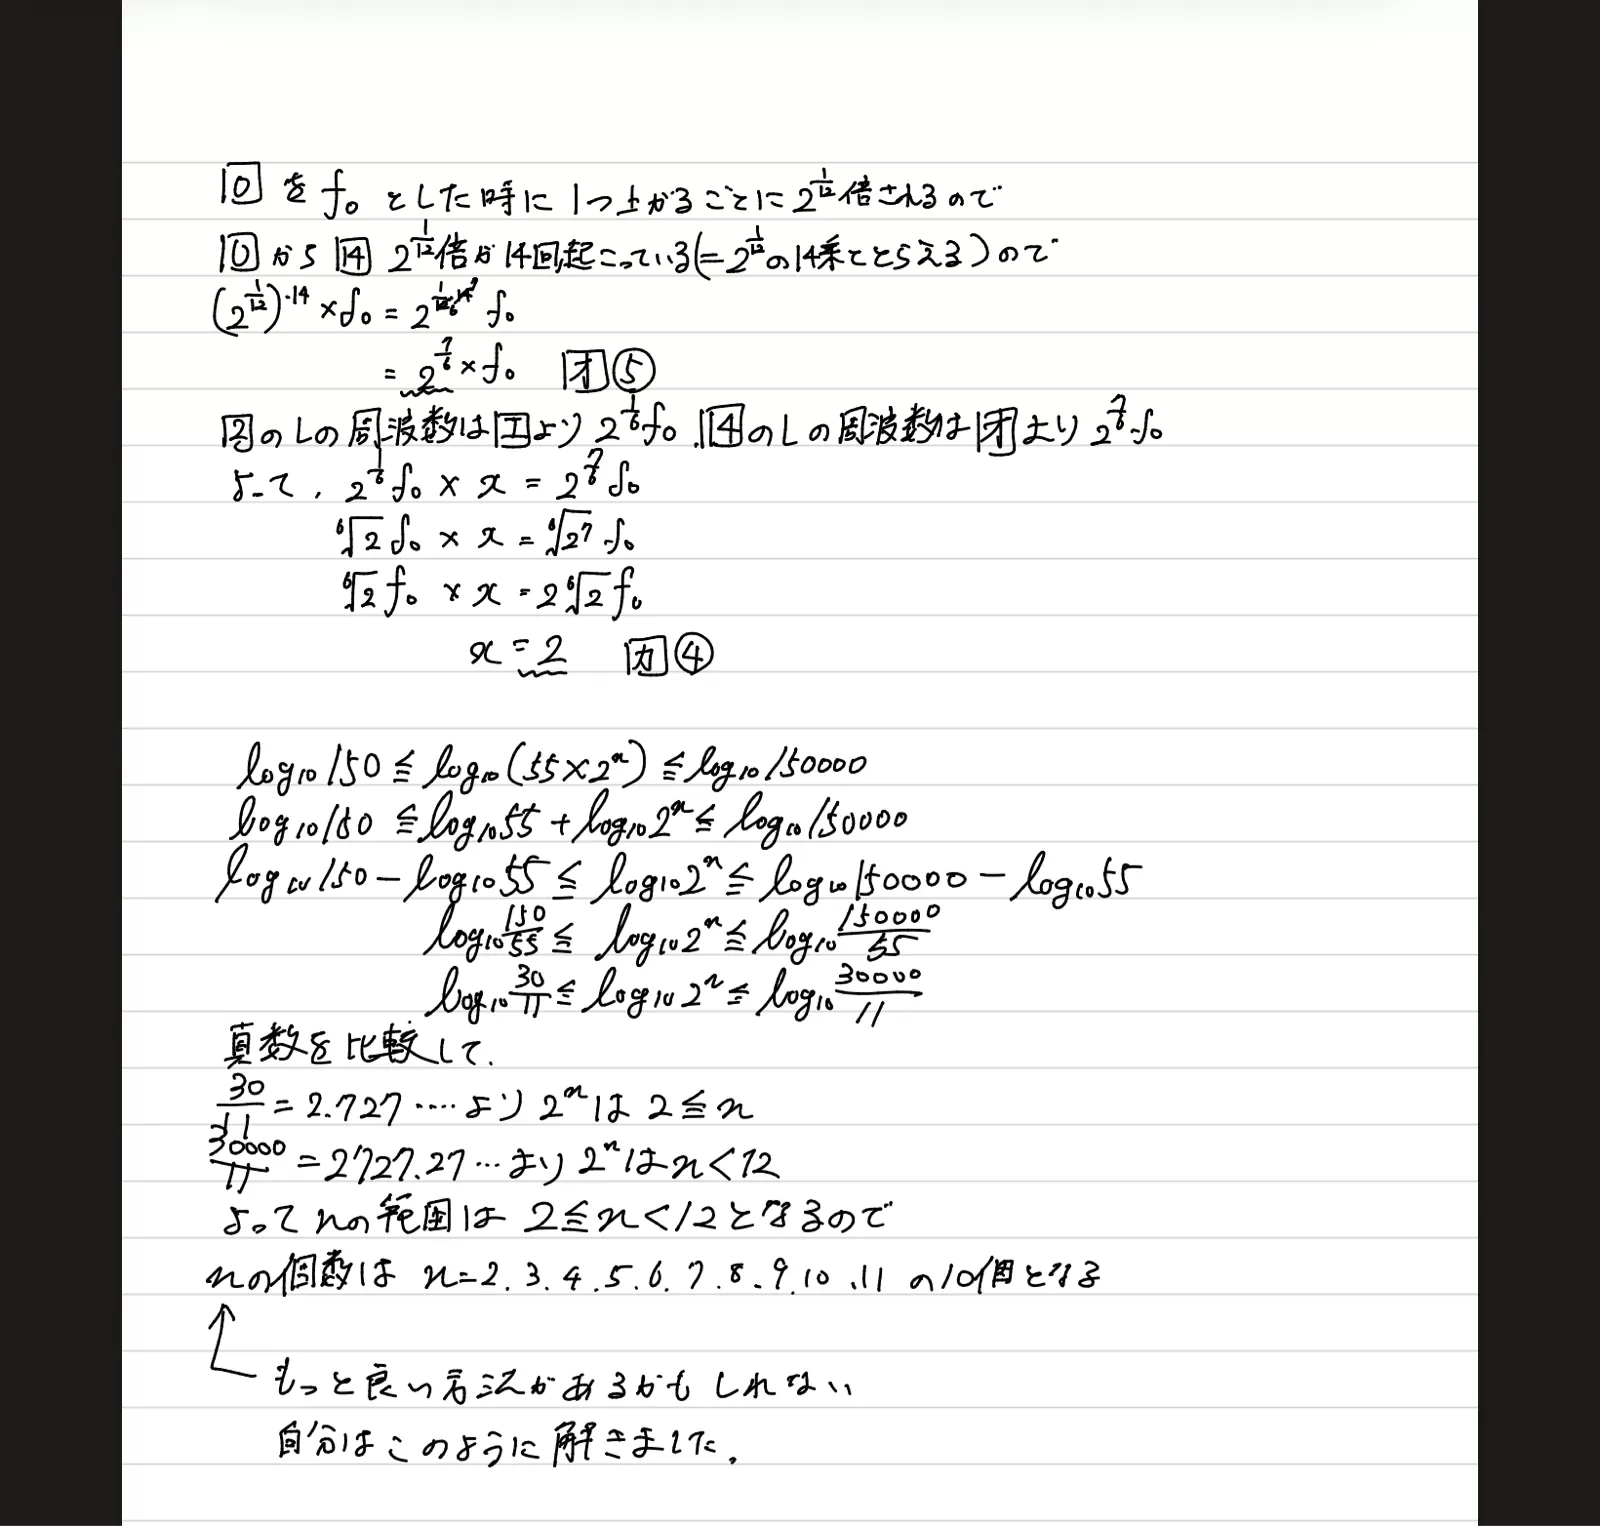 [0]をf₀とした時に1つ上がるごとに2^(1/12)倍されるので
[0]から[14] 2^(1/12)倍が14回起こっている(=2^(1/12)の14乗ととらえる)ので
(2^(1/12))^·14 × f₀ = 2^(1/12·14) f₀
= 2^(7/6) × f₀ [オ]⑤
[2]のLの周波数は[エ]より 2^(1/6)f₀.[14]のLの周波数は[オ]より 2^(7/6)f₀
よって. 2^(1/6)f₀ × x = 2^(7/6)f₀
⁶√2 f₀ × x = ⁶√2⁷ f₀
⁶√2 f₀ × x = 2⁶√2 f₀
x = 2 [カ]④
log₁₀150 ≦ log₁₀(55×2ⁿ) ≦ log₁₀150000
log₁₀150 ≦ log₁₀55 + log₁₀2ⁿ ≦ log₁₀150000
log₁₀150 − log₁₀55 ≦ log₁₀2ⁿ ≦ log₁₀150000 − log₁₀55
log₁₀150/55 ≦ log₁₀2ⁿ ≦ log₁₀150000/55
log₁₀30/11 ≦ log₁₀2ⁿ ≦ log₁₀30000/11
真数を比較して.
30/11 = 2.727‥‥より 2ⁿは 2≦n
30000/11 = 2727.27…より 2ⁿはn<12
よってnの範囲は 2≦n<12となるので
nの個数は n=2.3.4.5.6.7.8.9.10.11 の10個となる
もっと良い方法があるかもしれない
自分はこのように解きました.